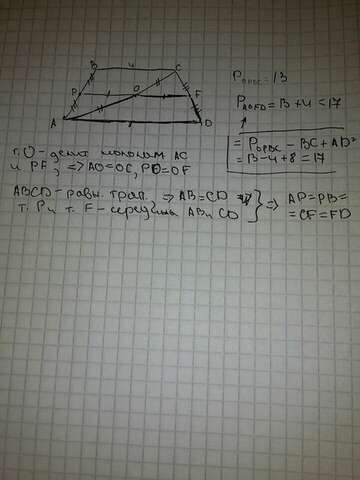 B 4 C
P O F
A D
P_OPBC = 13
P_AOFD = 13 + 4 = 17
= P_OPBC - BC + AD =
= 13 - 4 + 8 = 17
т. O - делит пополам AC
и PF, => AO = OC, PO = OF
ABCD - равн. трап. => AB = CD
т. P и т. F - середины AB и CD
=> AP = PB =
= CF = FD